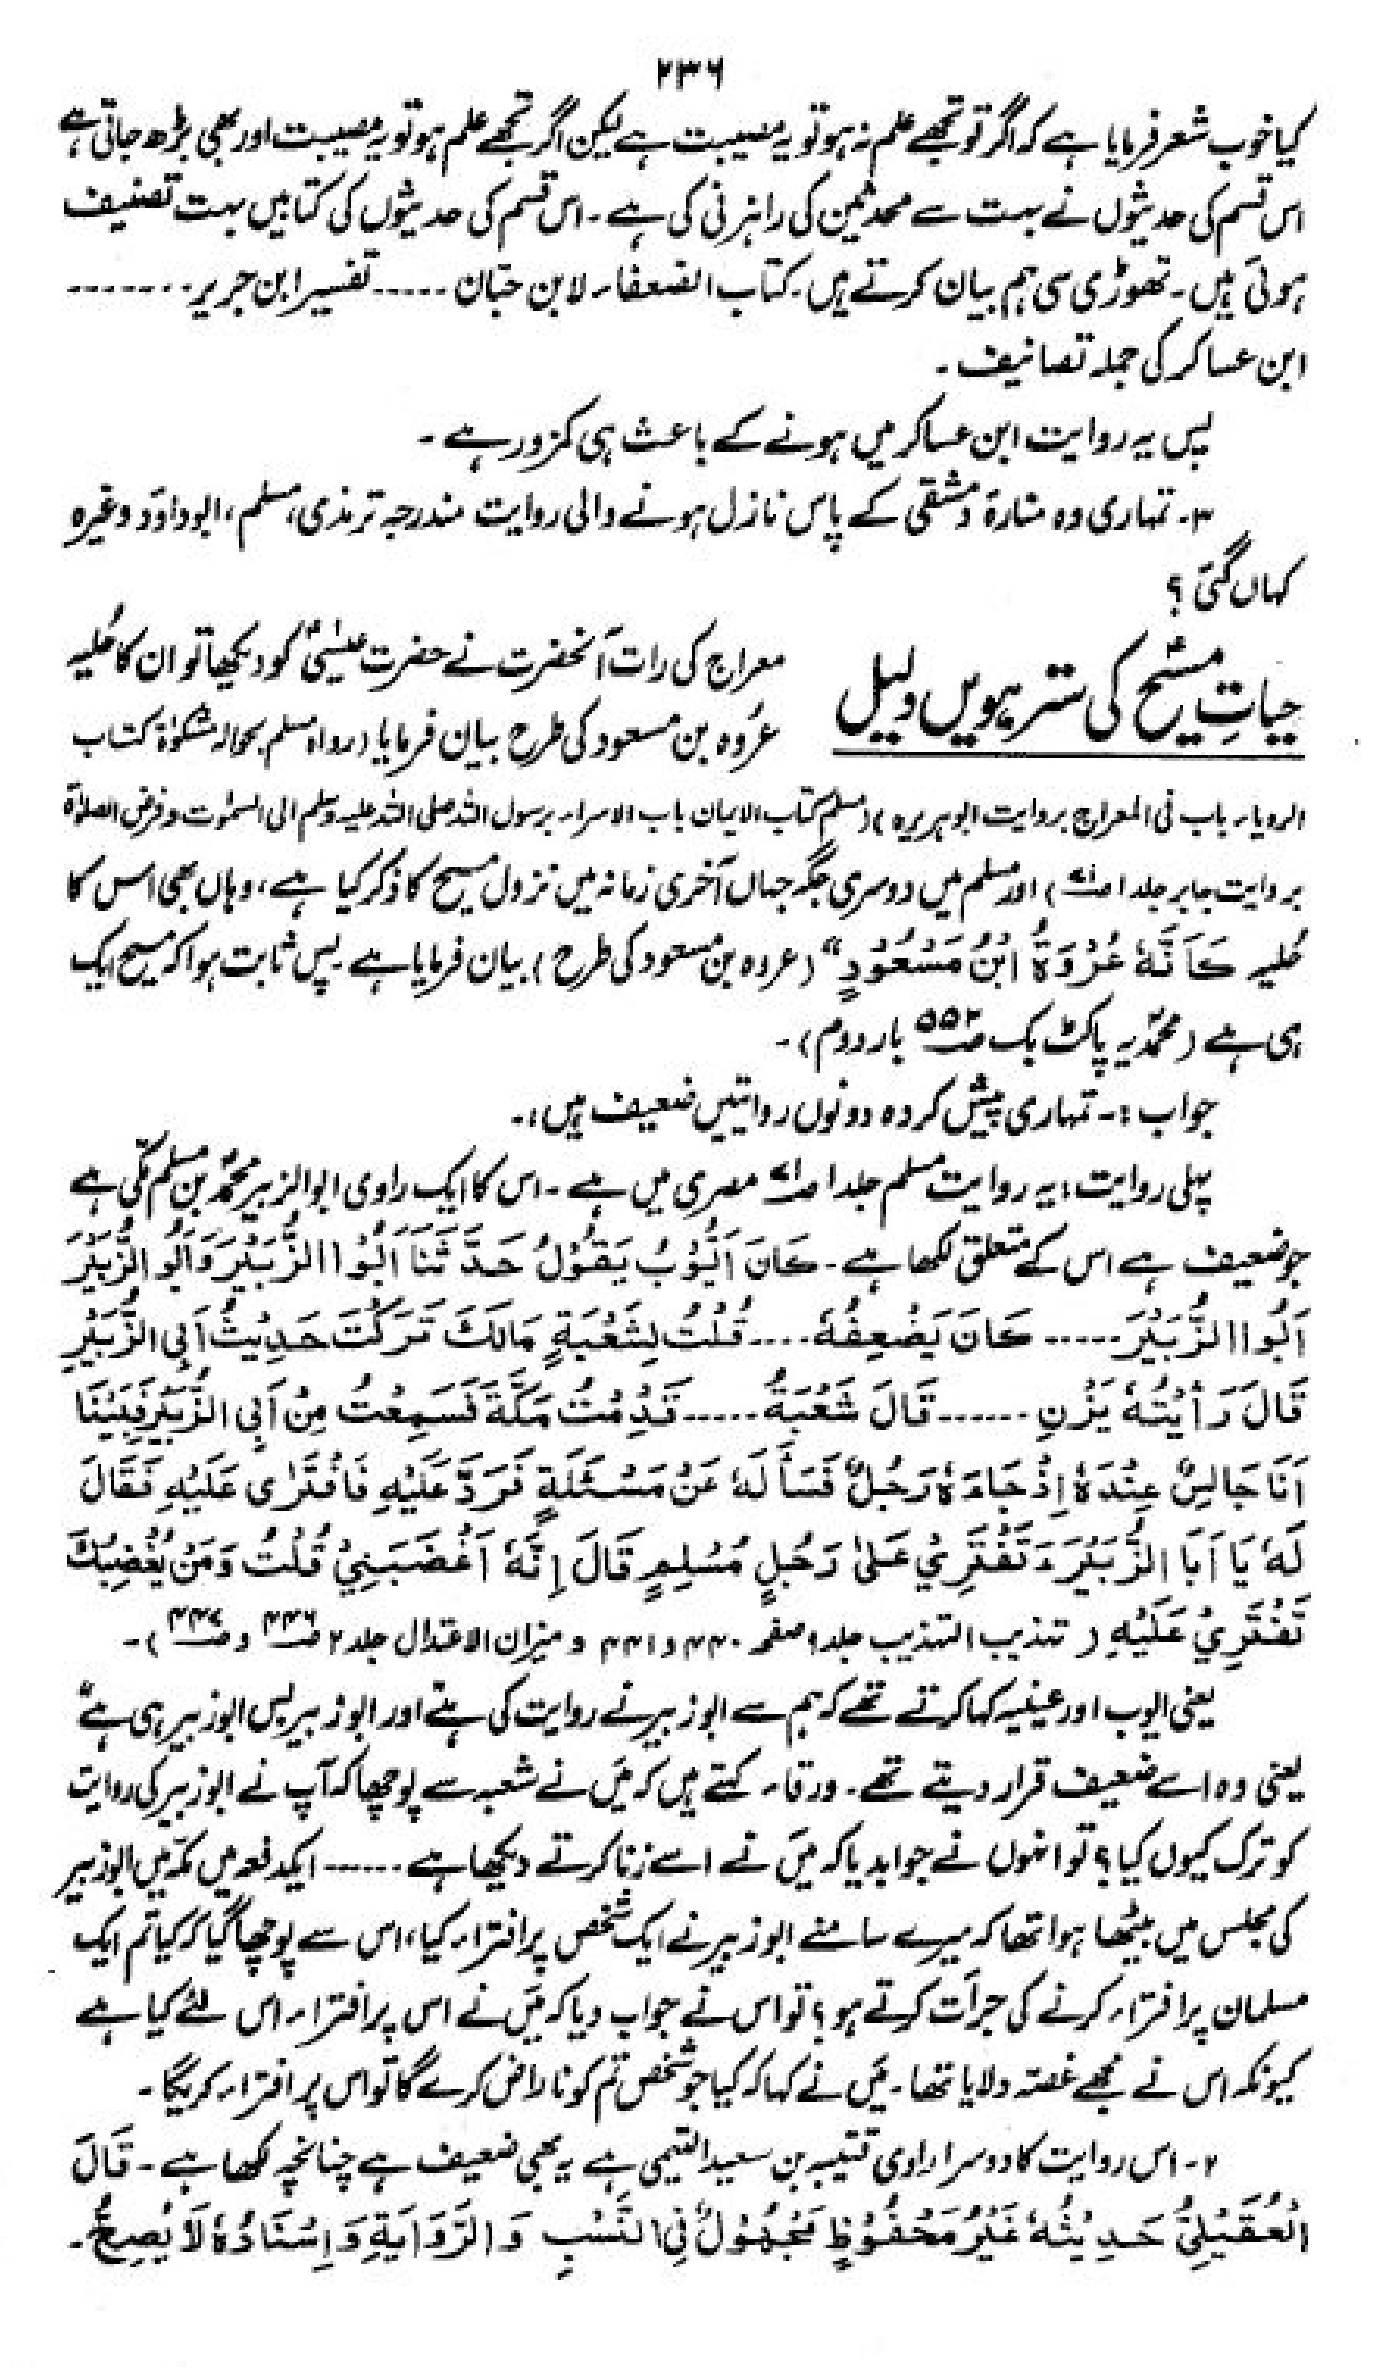 ۲۳۶
کیا خوب شعر فرمایا ہے کہ اگر تو تجھے علم نہ ہو تو یہ مصیبت ہے لیکن اگر تجھے علم ہو تو یہ مصیبت اور بھی بڑھ جاتی ہے
اس قسم کی حدیثوں نے بہت سے محدثین کی راہزنی کی ہے۔ اس قسم کی حدیثوں کی کتابیں بہت تصنیف
ہوئی ہیں۔ تھوڑی سی ہم بیان کرتے ہیں۔ کتاب الضعفاء لابن حبّان ..... تفسیر ابن جریر .......
ابن عساکر کی جملہ تصانیف۔
پس یہ روایت ابن عساکر میں ہونے کے باعث ہی کمزور ہے۔
۳۔ تمہاری وہ منارۃ دمشقی کے پاس نازل ہونے والی روایت مندرجہ ترمذی، مسلم، ابوداؤد وغیرہ
کہاں گئی ؟
حیاتِ مسیحؑ کی سترہویں دلیل
معراج کی رات آنحضرت نے حضرت عیسٰیؑ کو دیکھا تو ان کا حُلیہ
عُروہ بن مسعود کی طرح بیان فرمایا (رواہ مسلم بحوالہ مشکوٰۃ کتاب
الرویاء باب فی المعراج بروایت ابوہریرہ) (مسلم کتاب الایمان باب الاسراء برسول اللہ صلی اللہ علیہ وسلم الی السمٰوٰت و فرض الصلوٰۃ
بروایت جابر جلد ۱ ) اور مسلم میں دوسری جگہ جہاں آخری زمانہ میں نزول مسیح کا ذکر کیا ہے، وہاں بھی اس کا
حُلیہ کَاَنَّهٗ عُرْوَةُ ابْنُ مَسْعُوْدٍ" (عروہ بن مسعود کی طرح) بیان فرمایا ہے۔ پس ثابت ہوا کہ مسیح ایک
ہی ہے (محمدؐیہ پاکٹ بک صـ۵۵۲ بار دوم)۔
جواب :۔ تمہاری پیش کردہ دونوں روایتیں ضعیف ہیں:۔
پہلی روایت: یہ روایت مسلم جلد ۱ مصری میں ہے۔ اس کا ایک راوی ابوالزبیر محمدؐ بن مسلم مکّی ہے
جو ضعیف ہے اس کے متعلق لکھا ہے۔ کَانَ اَیُّوْبُ یَقُوْلُ حَدَّثَنَا اَبُوا الزُّبَیْرَ وَاَبُو الزُّبَیْرَ
اَبُوا الزُّبَیْرَ ..... کَانَ یَضْعِفُهٗ .... قُلْتُ لِشَعْبَةٍ مَالَكَ تَرَکْتَ حَدِیْثَ اَبِی الزُّبَیْرِ
قَالَ رَأَیْتُهٗ یَزْنِ ...... قَالَ شَعْبَةُ ..... قَدِمْتُ مَکَّةَ فَسَمِعْتُ مِنْ اَبِی الزُّبَیْرِ فَبَیْنَا
اَنَا جَالِسٌ عِنْدَهٗ اِذْ جَاءَهٗ رَجُلٌ فَسَأَلَهٗ عَنْ مَسْئَلَةٍ فَرَدَّ عَلَیْهِ فَافْتَرٰی عَلَیْهِ فَقَالَ
لَهٗ یَا اَبَا الزُّبَیْرَ ءَتَفْتَرِیْ عَلیٰ رَجُلٍ مُسْلِمٍ قَالَ اِنَّهٗ اَغْضَبَنِیْ قُلْتُ وَمَنْ یُغْضِبُكَ
تَفْتَرِیْ عَلَیْهِ (تہذیب التہذیب جلد ۹ صفحہ ۴۴۰ و ۴۴۱ و میزان الاعتدال جلد ۲ صـ۴۴۶ و صـ۴۴۷)۔
یعنی ایوب اور عینیہ کہا کرتے تھے کہ ہم سے ابوزبیر نے روایت کی ہے اور ابوزبیر پس ابوزبیر ہی ہے"
یعنی وہ اسے ضعیف قرار دیتے تھے۔ ورقاء کہتے ہیں کہ مَیں نے شعبہ سے پوچھا کہ آپ نے ابوزبیر کی روایت
کو ترک کیوں کیا؟ تو انہوں نے جواب دیا کہ مَیں نے اسے زنا کرتے دیکھا ہے ...... ایکدفعہ میں مکّہ میں ابوزبیر
کی مجلس میں بیٹھا ہوا تھا کہ میرے سامنے ابوزبیر نے ایک شخص پر افتراء کیا، اس سے پوچھا گیا کہ کیا تم ایک
مسلمان پر افتراء کرنے کی جرأت کرتے ہو؟ تو اس نے جواب دیا کہ مَیں نے اس پر افتراء اس لئے کیا ہے
کیونکہ اس نے مجھے غصّہ دلایا تھا۔ مَیں نے کہا کہ کیا جو شخص تم کو ناراض کرے گا تو اس پر افتراء کریگا۔
۲۔ اس روایت کا دوسرا راوی قتیبہ بن سعید التیمی ہے یہ بھی ضعیف ہے چنانچہ لکھا ہے۔ قَالَ
الْعُقَیْلِیُّ حَدِیْثُهٗ غَیْرُ مَحْفُوْظٍ مَجْهُوْلٌ فِی النَّسْبِ وَ الرَّوَایَةِ وَ اِسْنَادُهٗ لَا یُصِحُّ۔